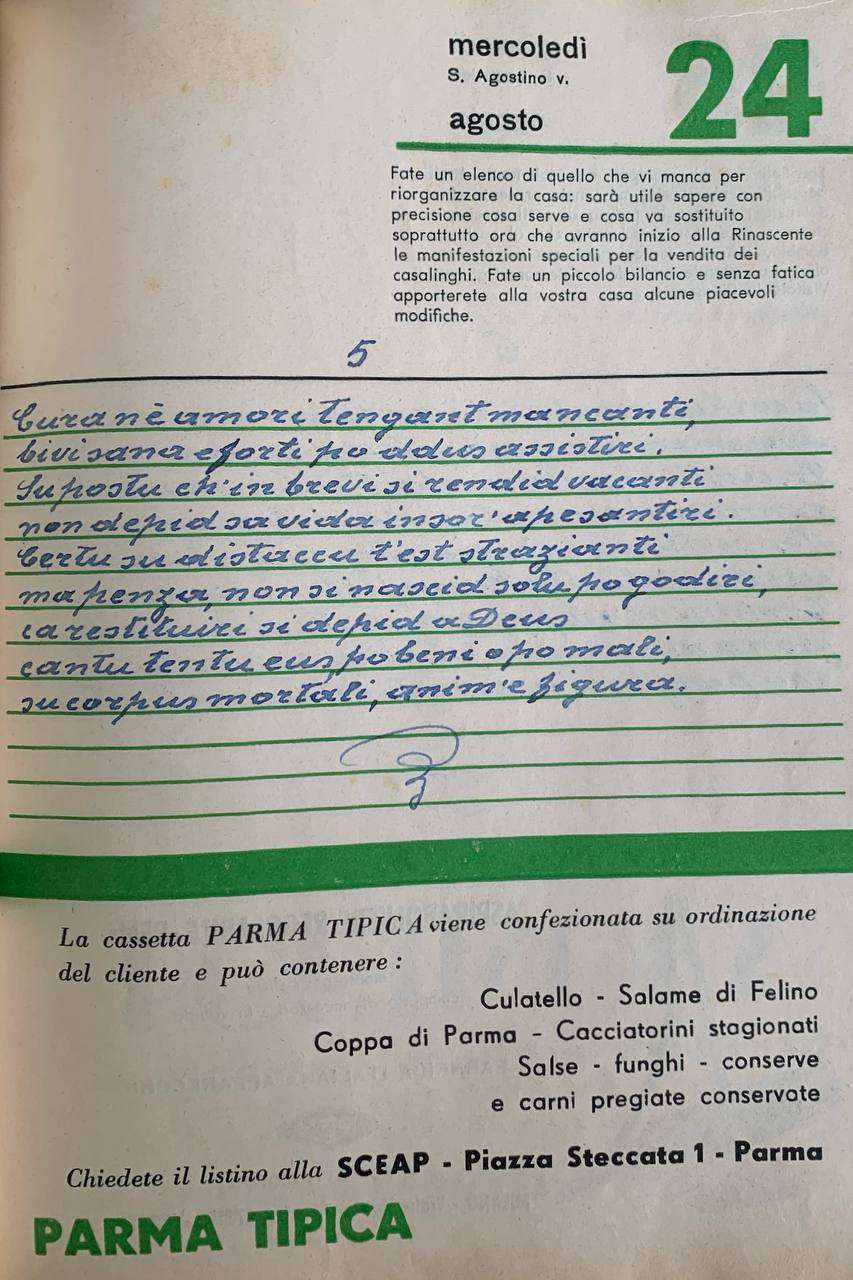 mercoledì
S. Agostino v.
agosto
24
Fate un elenco di quello che vi manca per
riorganizzare la casa: sarà utile sapere con
precisione cosa serve e cosa va sostituito
soprattutto ora che avranno inizio alla Rinascente
le manifestazioni speciali per la vendita dei
casalinghi. Fate un piccolo bilancio e senza fatica
apporterete alla vostra casa alcune piacevoli
modifiche.
5
Cura nè amori tengant mancanti,
bivi sana e forti po ddus assistiri.
Supostu ch'in brevi si rendid vacanti
non depid sa vida insor'apesantiri.
Certu su distaccu t'est strazianti
ma penza, non si nascid solu po godiri,
ca restituiri si depid a Deus
cantu tentu eus, po beni o po mali,
su corpus mortali, anim'e figura.
La cassetta PARMA TIPICA viene confezionata su ordinazione
del cliente e può contenere :
Culatello - Salame di Felino
Coppa di Parma - Cacciatorini stagionati
Salse - funghi - conserve
e carni pregiate conservate
Chiedete il listino alla SCEAP - Piazza Steccata 1 - Parma
PARMA TIPICA